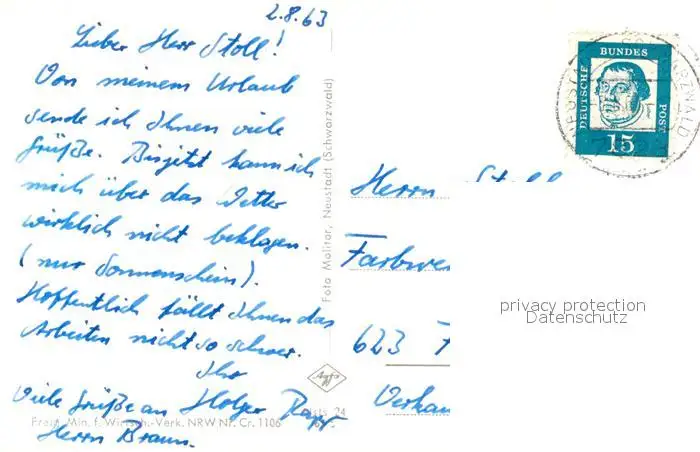 2.8.63
Lieber Herr Stoll!
Von meinem Urlaub
sende ich Ihnen viele
Grüße. Bisjetzt kann ich
mich über das Wetter
wirklich nicht beklagen.
(nur Sonnenschein).
Hoffentlich fällt Ihnen das
Arbeiten nicht so schwer.
Ihr
Holger
Viele Grüße an
Herrn Braun.
Foto Molitor, Neustadt (Schwarzwald)
Agfa
Freig. Min. f. Wirtsch.-Verk. NRW Nr. Cr. 1106
24
DEUTSCHE
BUNDES
POST
15
SCHWARZWALD
Herrn Stoll
Farbwe
623
Verkau
privacy protection
Datenschutz